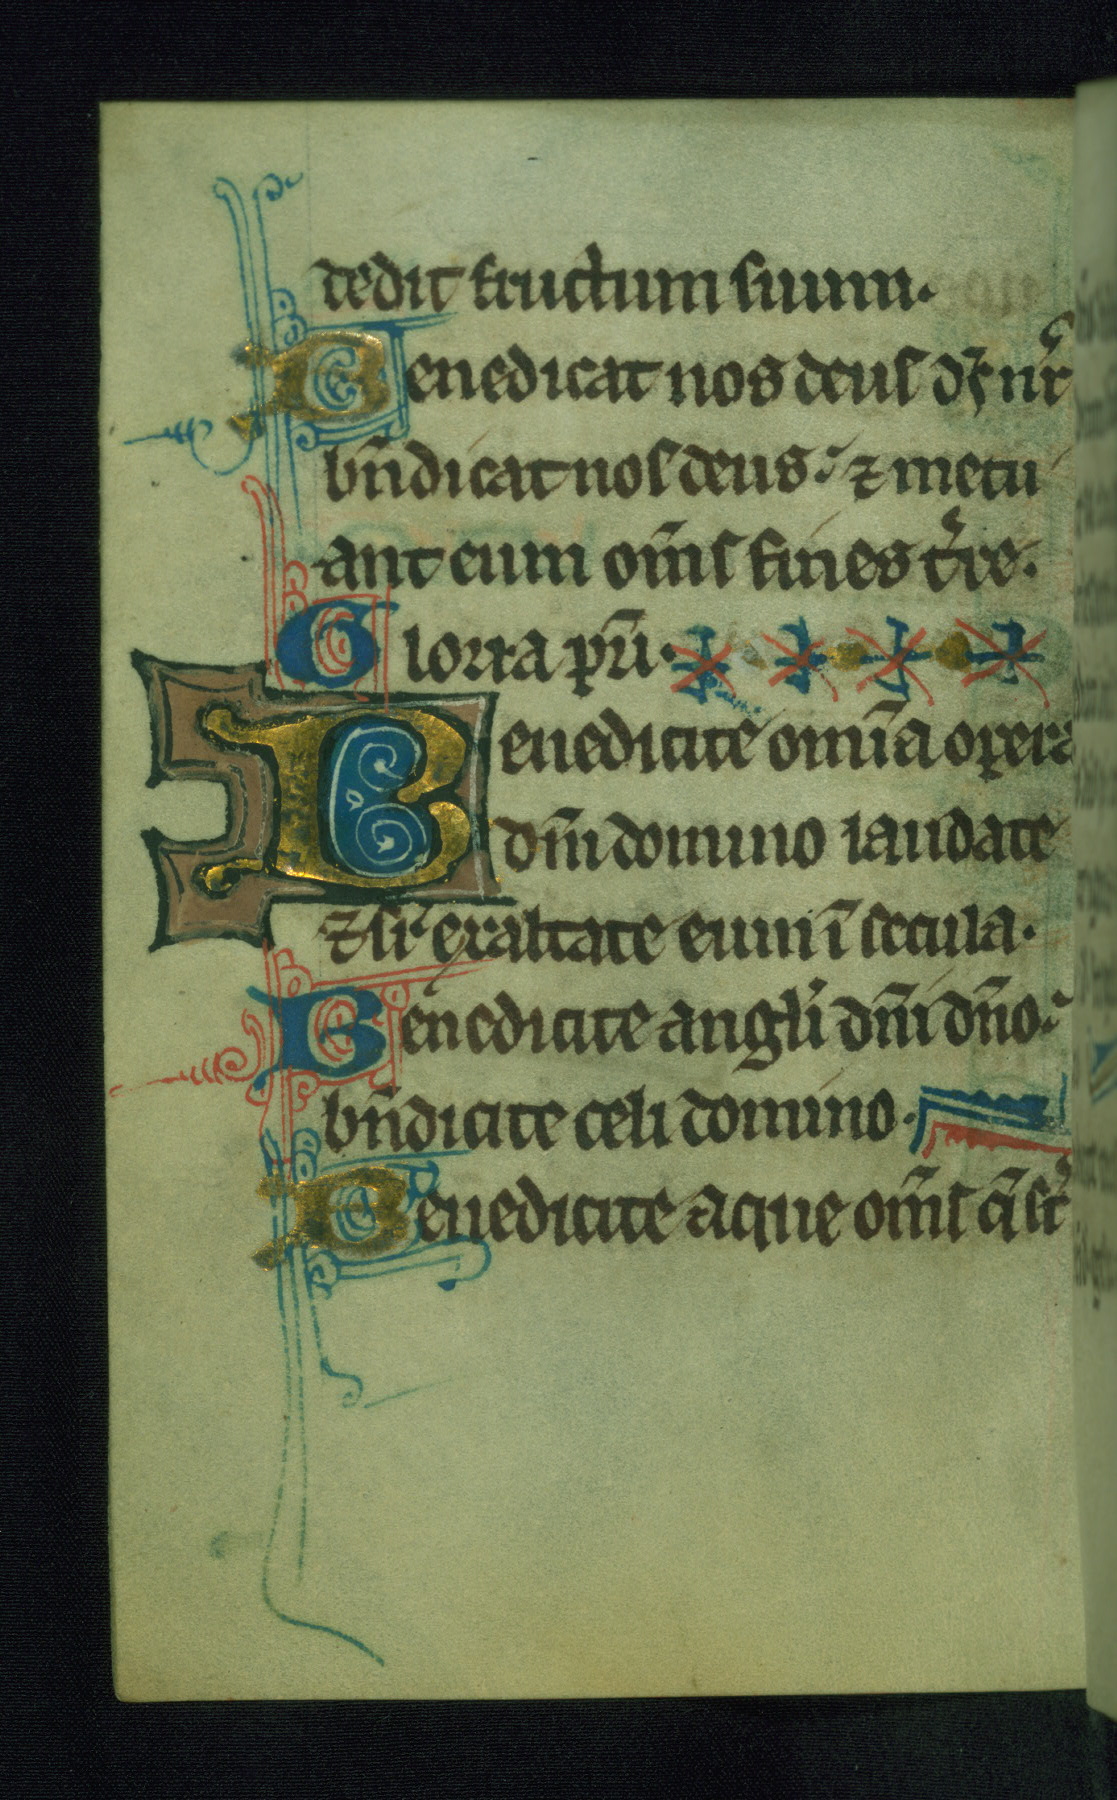 dedit fructum suum.
Benedicat nos deus dſ nr̄
bn̄dicat nos deus: ⁊ metu
ant eum om̄s fines t̄re.
Gloria pr̄i.
Benedicite omīa opera
dn̄i domino laudate
⁊ sr̄ exaltate eum ī secula.
Benedicite angli dn̄i dn̄o:
bn̄dicite celi domino.
Benedicite aque om̄s q̄ sr̄